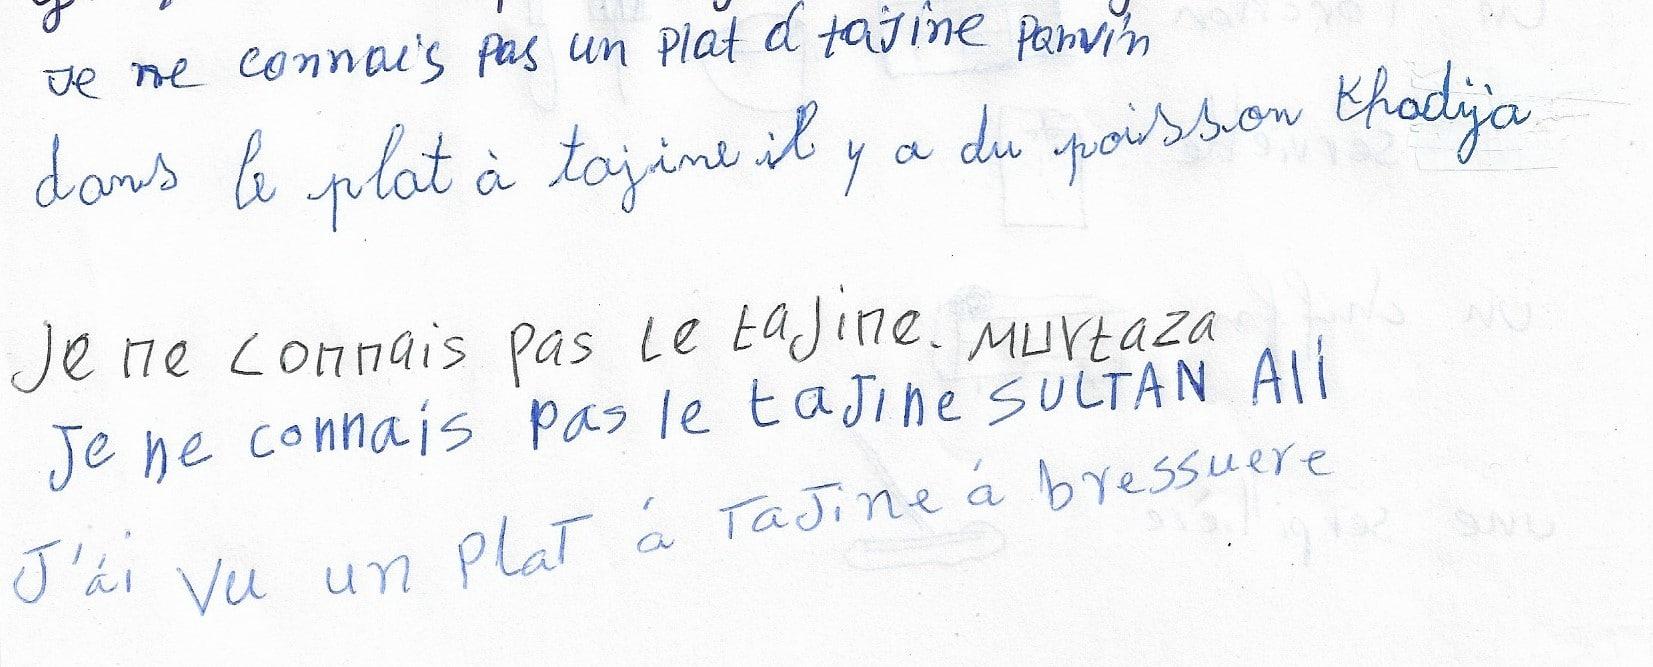 Je ne connais pas un plat d tajine Parvin
dans le plat à tajine il y a du poisson Khadija
Je ne connais pas le tajine. Murtaza
Je ne connais pas le tajine SULTAN Ali
J'ái vu un plat á Tajine á bressuere